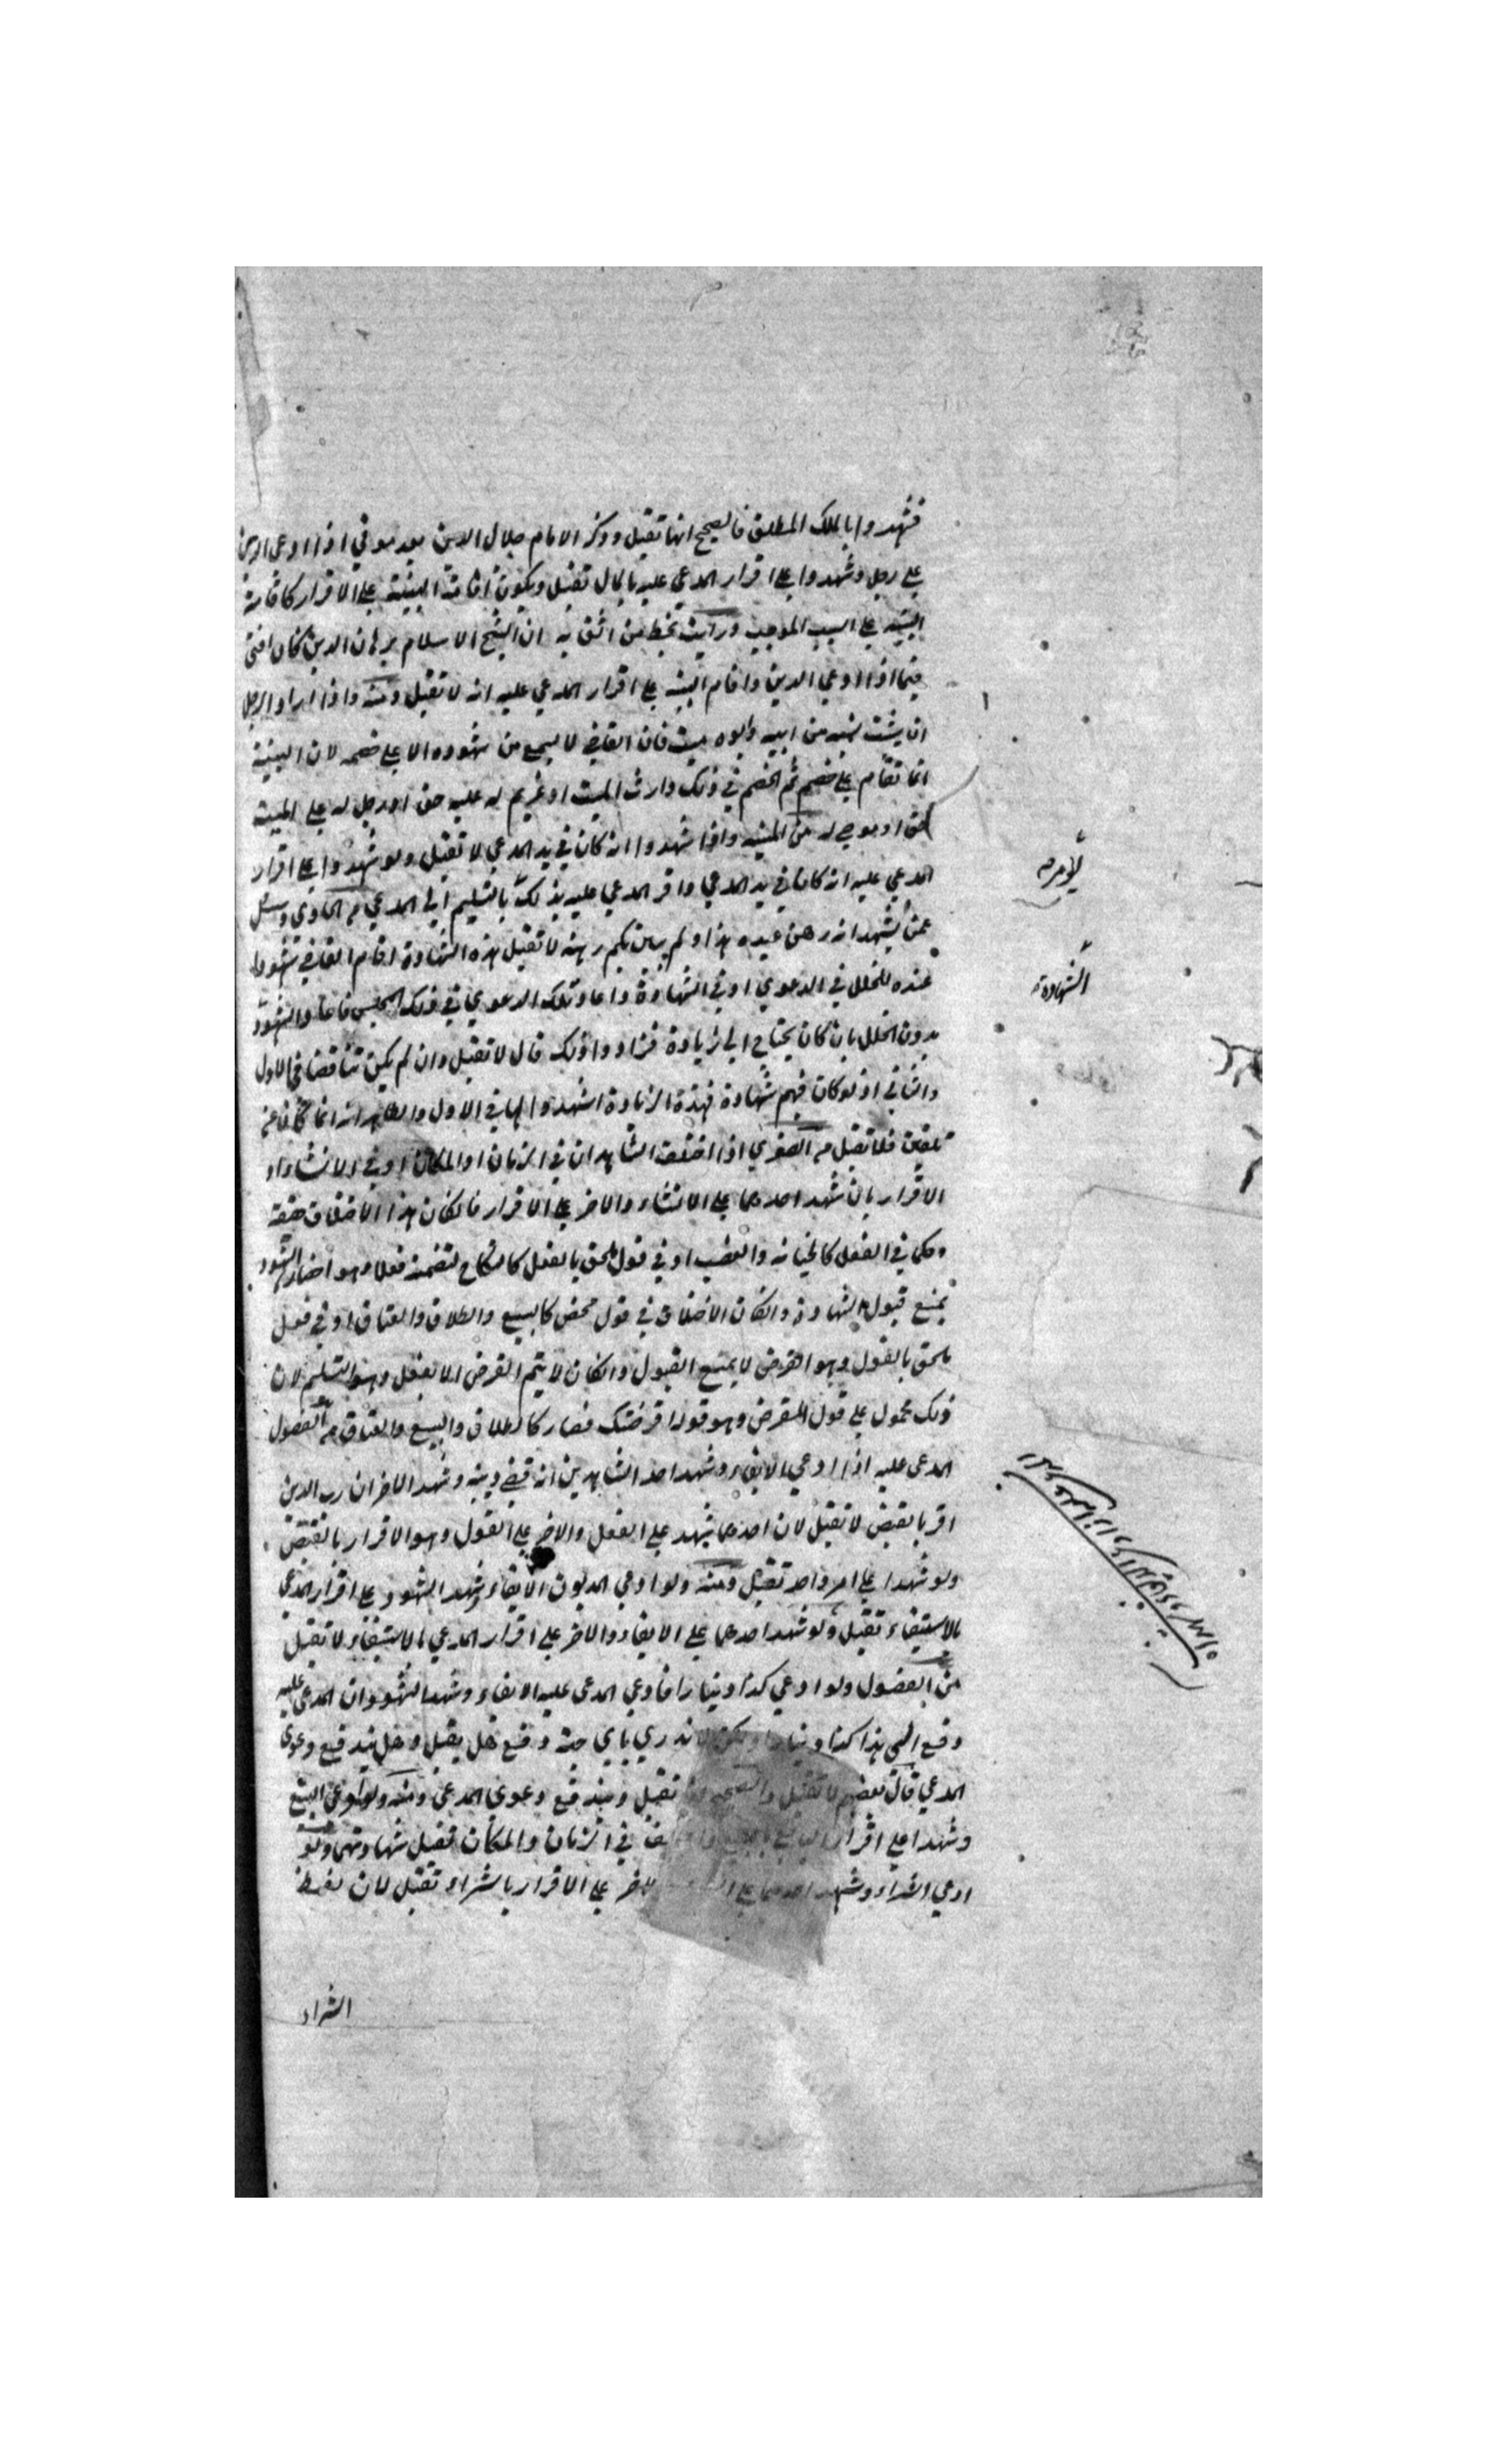 فشهدوا بالملك المطلق فالصحيح انها تقبل وذكر الامام جلال الدين اذا ادعى الدين
على رجل وشهدوا على اقرار المدعي عليه بالمال تقبل ويكون اقامة البينة على الاقرار كاقامة
البينة على السبب الموجب ورأيت بخط من اثق به ان الشيخ الاسلام برهان الدين كان افتى
فيما اذا ادعي الدين واقام البينة على اقرار المدعي عليه انه لا تقبل ومنه واذا اراد الرجل
ان يثبت نسبه من ابيه وابوه ميت فان القاضي لا يسمع من شهوده الا على خصم لان البينة
انما تقام على خصم ثم الخصم في ذلك وارث الميت او غريم له عليه حق او رجل له على الميت
حق او موصى له من الميت واذا شهدوا انه كان في يد المدعي لا تقبل ولو شهدوا على اقرار
المدعي عليه انه كان في يد المدعي واقر المدعي عليه بذلك بالتسليم الى المدعي من الحاوي وسئل
عمن شهد انه رهن عبده هذا ولم يبين بكم رهنه لا تقبل هذه الشهادة اقام القاضي شهودا
عنده للخلل في الدعوي او في الشهادة واعاد تلك الدعوي في ذلك المجلس والشهود
بدون الخلل بان كان يحتاج الى زيادة فزادوا ذلك قال لا تقبل وان لم يكن تناقضا في الاول
والثاني اذ لو كان فيهم شهادة فهذه الزيادة اشهدوا بها في الاول والظاهر انه انما كان عن
تلقين فلا تقبل من الصغري اذا اختلف الشاهدان في الزمان او المكان او في الانشاء او
الاقرار بان شهد احدهما على الانشاء والاخر على الاقرار فان كان هذا الاختلاف حقيقة
وحكما في الفعل كالجناية والغصب او في قول ملحق بالفعل كالنكاح لتضمنه فعلا وهو احضار الشهود
يمنع قبول الشهادة وان كان الاختلاف في قول محض كالبيع والطلاق والعتاق او في فعل
ملحق بالقول وهو القرض لا يمنع القبول وان كان لا يتم القرض الا بفعل وهو التسليم لان
ذلك محمول على قول المقرض وهو قوله اقرضتك فصار كالطلاق والبيع والعتاق من الفصول
المدعى عليه اذا ادعي الايفاء وشهد احد الشاهدين انه قبض دينه وشهد الاخر ان رب الدين
اقر بالقبض لا تقبل لان احدهما شهد على الفعل والاخر على القول وهو الاقرار بالقبض
ولو شهدا على امر واحد تقبل ومنه ولو ادعي المديون الايفاء وشهد الشهود على اقرار المدعي
بالاستيفاء تقبل ولو شهد احدهما على الايفاء والاخر على اقرار المدعي بالاستيفاء لا تقبل
من الفصول ولو ادعي كذا دينارا فادعي المدعى عليه الايفاء وشهد الشهود ان المدعى عليه
دفع الى هذا كذا دينارا ولكن لا ندري باي جهة دفع هل يقبل وهل يندفع دعوى
المدعي قال بعضهم لا تقبل والصحيح انه تقبل ويندفع دعوى المدعي ومنه ولو ادعى البيع
وشهدا على اقرار البائع بالبيع واختلفا في الزمان والمكان تقبل شهادتهما ومنه ولو
ادعي الشراء وشهد احدهما على الشراء والاخر على الاقرار بالشراء تقبل لان لفظ
الشراء
لا يؤمر
الشهادة